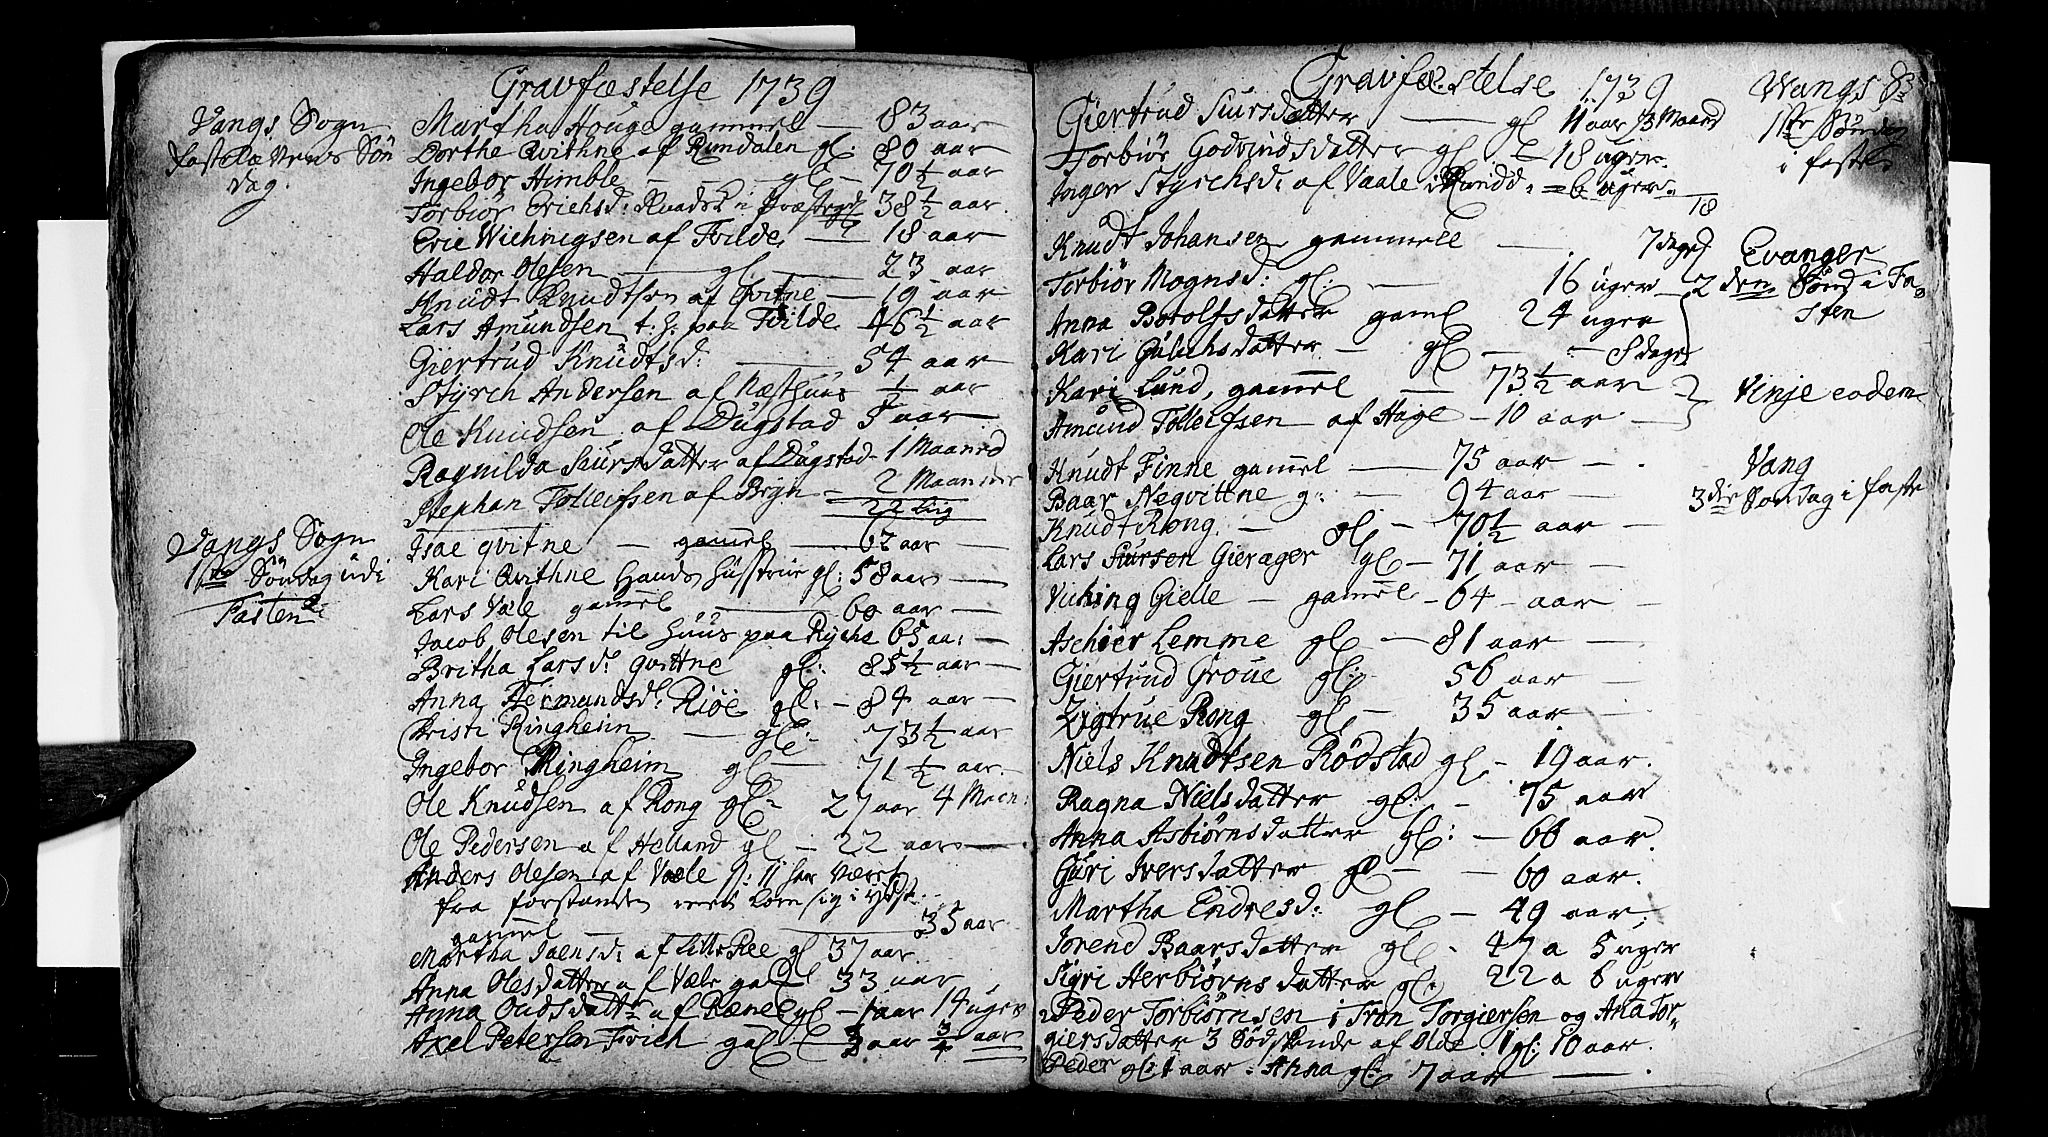 Gravfæstelse 1739
Vangs Sogn
fastelavens Søn
dag.
Martha Houge gammel — 83 aar
Dorthe Qvithne af Rundalen gl: 80 aar
Ingebor Himble — gl — 70 1/2 aar
Torbiør Erichsd: i 38 1/2 aar
Eric Wichingsen af Tvilde — 18 aar
Haldor Olesen — gl. — 23 aar
Knudt Knudtsen af Qvitne — 19 aar
Lars Amundsen t. h. paa Tvilde 46 1/2 aar
Giertrud Knudtsd: — 54 aar
Styrch Andersen af Næsthuus 1/2 aar
Ole Knudsen af Dugstad 5 aar
Ragnilda Siursdatter af Dugstad - 1 Maaned
Stephan Tolleifsen af Bryn - 2 Maaneder
22 Liig
Vangs Sogn
1ste Søndag udi
Fasten
Isac qvitne — gammel — 62 aar —
Kari Qvithne Hands Hustrue gl: 58 aar —
Lars Væle gammel — 60 aar —
Jacob Olesen til Huus paa Rychs 65 aa: —
Britha Larsd: qvittne gl: 85 1/2 aar —
Anna Hermundsd: Riøe gl: - 84 aar —
Kristi Ringheim — gl: - 73 1/2 aar
Ingebor Ringheim gl — 71 1/2 aar.
Ole Knudsen af Rong gl: 27 aar 4 Maan:
Ole Pedersen af Helland gl — 22 aar —
Anders Olesen af Væle 9: 11 har været
fra forstanden
gammel — 35 aar
Martha Joensd: af Lille Ree gl 37 aar
Anna Olesdatter af Væle gal 33 aar
Anna Oudsdattr af Ræne gl — 1 aar 14 uger
Axel Petersen Frich gal — aar 3/4 aar
Gravfæstelse 1739
Vangs S:
1ste Søndag
i faste
Giertrud Siursdatter — gl 11 aar 3 Maand
Torbiør Godvindsdatter gl: — 18 uger
Inger Styrchsd: af Væle i Rundd: = 6 uger.
18
Knudt Johansen gammell — 7 dage
Torbiør Mognsd: gl: — 16 uger
Anna Botolfsdatter gaml 24 uger
Kari Gulichsdatter — gl — 8 dage
Evanger
2den Sønd i Fa-
sten
Kari Lund, gammel — 73 1/2 aar
Amund Tolleifsen af Hage — 10 aar —
Vinje eodem
Knudt Finne gammel — 75 aar — .
Baar Neqvittne g: — 94 aar —
Knudt Rong. — gl, — 70 1/2 aar —
Lars Siursen Gierager gl — 71 aar —
Viching Gielle — gammel — 64 — aar —
Vang
3die Søndag i faste
Aschier Lemme gl — 81 aar —
Giertrud Groue gl: 56 aar —
Zigtrue Rong gl, — 35 aar —
Niels Knudtsen Rödstad gl, - 19 aar.
Ragna Nielsdatter gl: - 75 aar
Anna Asbiørnsdatter gl: — 66 aar.
Guri Iversdatter gl — — 60 aar.
Martha Endresd: gl — 49 aar.
Jorend Baarsdatter gl - 47 a 5 uger
Sigri Herbiørnsdatter gl: 22 a 6 uger
Peder Torbiørnsen i Tron Torgiersen og Ana Tor-
giersdatter 3 Södskende af Olde 1 gl: 10 aar.
Peder gl: 1 aar. Anna gl: 7 aar — .